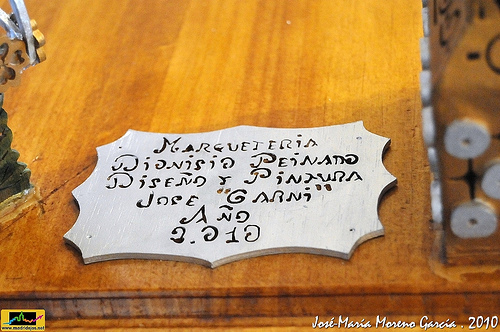 MARQUETERIA
DIONISIO PEINADO
DISEÑO Y PINTURA
JOSE "GARNI"
AÑO
2.010
www.madridejos.net
José-María Moreno García . 2010